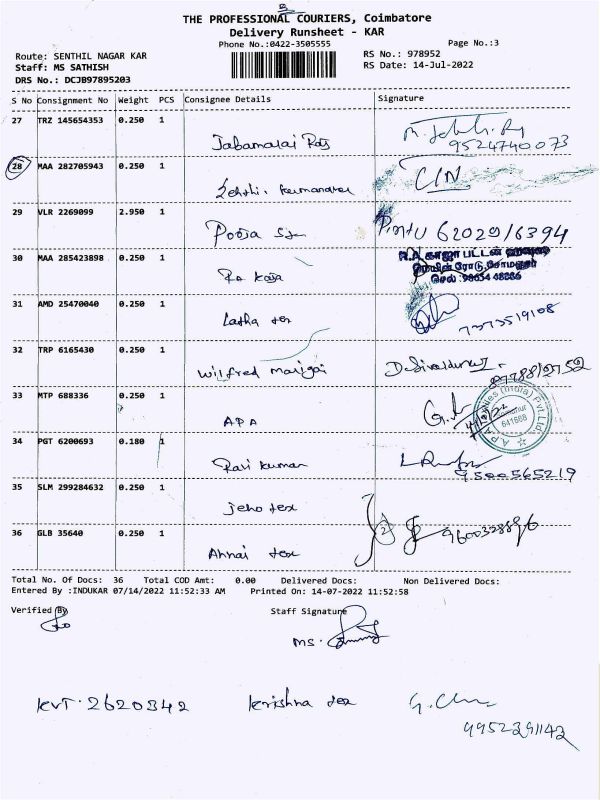 THE PROFESSIONAL COURIERS, Coimbatore
Delivery Runsheet - KAR
Phone No.:0422-3505555
Page No.:3
Route: SENTHIL NAGAR KAR
Staff: MS SATHISH
DRS No.: DCJB97895203
RS No.: 978952
RS Date: 14-Jul-2022
S No Consignment No Weight PCS Consignee Details Signature
27 TRZ 145654353 0.250 1
Jabamalai Raj
9524740073
28 MAA 282705943 0.250 1
29 VLR 2269099 2.950 1
Pooja
Pintu 6202916394
30 MAA 285423898 0.250 1
31 AMD 25470040 0.250 1
Latha tex
7373519108
32 TRP 6165430 0.250 1
Wilfred
33 MTP 688336 0.250 1
APA
641668
34 PGT 6200693 0.180 1
Ravi kumar
9500565219
35 SLM 299284632 0.250 1
Jeho tex
36 GLB 35640 0.250 1
Annai tex
Total No. Of Docs: 36 Total COD Amt: 0.00 Delivered Docs: Non Delivered Docs:
Entered By :INDUKAR 07/14/2022 11:52:33 AM Printed On: 14-07-2022 11:52:58
Verified By
Staff Signature
MS.
KVT. 2620342 Krishna tex
9952291142